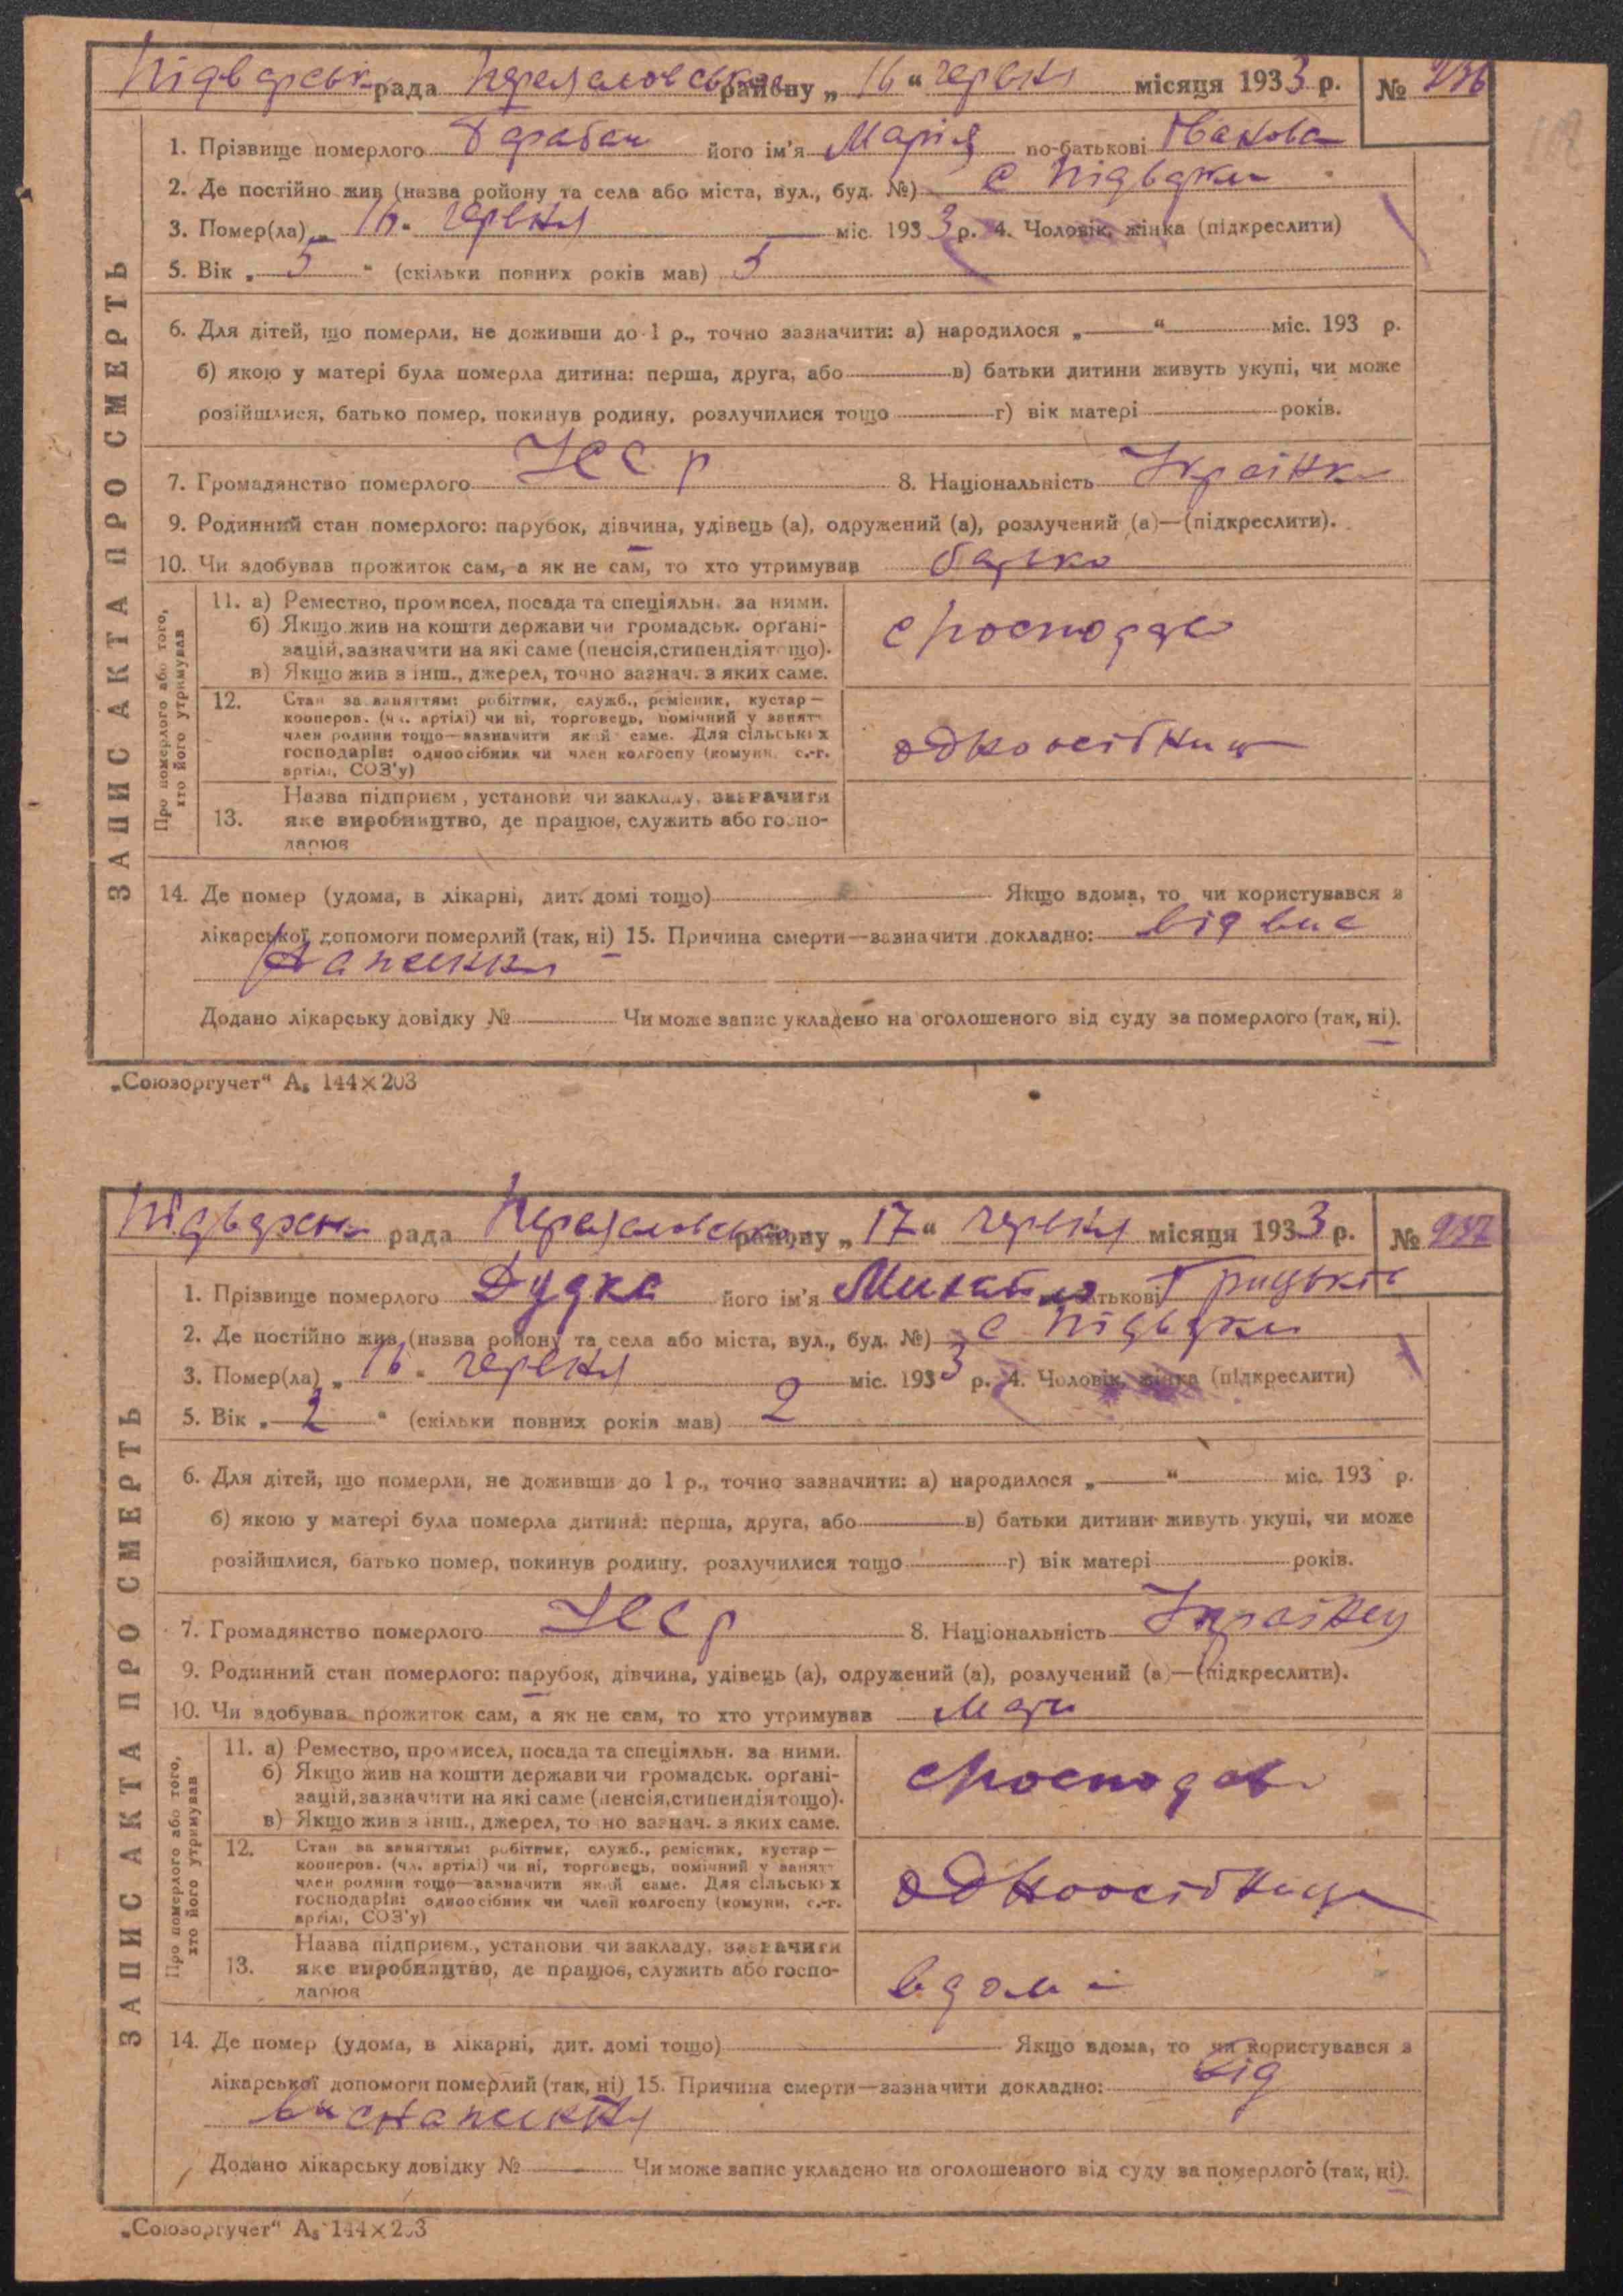 Підварськ рада Переяславськ району „ 16 “ червня місяця 1933 р. № 236
1. Прізвище померлого Барабаш його ім'я Марія по-батькові Івакова
2. Де постійно жив (назва ройону та села або міста, вул., буд. №) с Підварки
3. Помер(ла) „ 16 “ червня міс. 1933 р. 4. Чоловік, жінка (підкреслити)
5. Вік „ 5 “ (скільки повних років мав) 5
6. Для дітей, що померли, не доживши до 1 р., точно зазначити: а) народилося „ “ міс. 193 р.
б) якою у матері була померла дитина: перша, друга, або в) батьки дитини живуть укупі, чи може
розійшлися, батько помер, покинув родину, розлучилися тощо г) вік матері років.
7. Громадянство померлого УССР 8. Національність Українка
9. Родинний стан померлого: парубок, дівчина, удівець (а), одружений (а), розлучений (а)—(підкреслити).
10. Чи здобував прожиток сам, а як не сам, то хто утримував батько
ЗАПИС АКТА ПРО СМЕРТЬ
Про померлого або того,
хто його утримував
11. а) Ремество, промисел, посада та спеціяльн. за ними.
б) Якщо жив на кошти держави чи громадськ. орґані-
зацій, зазначити на які саме (пенсія, стипендія тощо).
в) Якщо жив з інш., джерел, точно зазнач. з яких саме.
с господар
12. Стан за заняттям: робітник, служб., ремісник, кустар—
кооперов. (чл. артілі) чи ні, торговець, помічний у занят-
член родини тощо—зазначити який саме. Для сільських
господарів: одноосібник чи член колгоспу (комуни, с.-г.
артілі, СОЗ'у)
одноосібник
13. Назва підприєм., установи чи закладу, зазначити
яке виробництво, де працює, служить або госпо-
дарює
14. Де помер (удома, в лікарні, дит. домі тощо) Якщо вдома, то чи користувався з
лікарської допомоги померлий (так, ні) 15. Причина смерти—зазначити докладно: від вис
напення
Додано лікарську довідку № Чи може запис укладено на оголошеного від суду за померлого (так, ні).
„Союзоргучет“ А5 144×203
Підварськ рада Переяславськ району „ 17 “ червня місяця 1933 р. № 237
1. Прізвище померлого Дудка його ім'я Михайло батькові Грицьків
2. Де постійно жив (назва ройону та села або міста, вул., буд. №) с Підварки
3. Помер(ла) „ 16 “ червня міс. 1933 р. 4. Чоловік, жінка (підкреслити)
5. Вік „ 2 “ (скільки повних років мав) 2
6. Для дітей, що померли, не доживши до 1 р., точно зазначити: а) народилося „ “ міс. 193 р.
б) якою у матері була померла дитина: перша, друга, або в) батьки дитини живуть укупі, чи може
розійшлися, батько помер, покинув родину, розлучилися тощо г) вік матері років.
7. Громадянство померлого УССР 8. Національність Українец
9. Родинний стан померлого: парубок, дівчина, удівець (а), одружений (а), розлучений (а)—(підкреслити).
10. Чи здобував прожиток сам, а як не сам, то хто утримував мати
ЗАПИС АКТА ПРО СМЕРТЬ
Про померлого або того,
хто його утримував
11. а) Ремество, промисел, посада та спеціяльн. за ними.
б) Якщо жив на кошти держави чи громадськ. орґані-
зацій, зазначити на які саме (пенсія, стипендія тощо).
в) Якщо жив з інш., джерел, точно зазнач. з яких саме.
с господар
12. Стан за заняттям: робітник, служб., ремісник, кустар—
кооперов. (чл. артілі) чи ні, торговець, помічний у занят-
член родини тощо—зазначити який саме. Для сільських
господарів: одноосібник чи член колгоспу (комуни, с.-г.
артілі, СОЗ'у)
одноосібниця
13. Назва підприєм., установи чи закладу, зазначити
яке виробництво, де працює, служить або госпо-
дарює
вдома
14. Де помер (удома, в лікарні, дит. домі тощо) Якщо вдома, то чи користувався з
лікарської допомоги померлий (так, ні) 15. Причина смерти—зазначити докладно: від
виснапення
Додано лікарську довідку № Чи може запис укладено на оголошеного від суду за померлого (так, ні).
„Союзоргучет“ А5 144×203